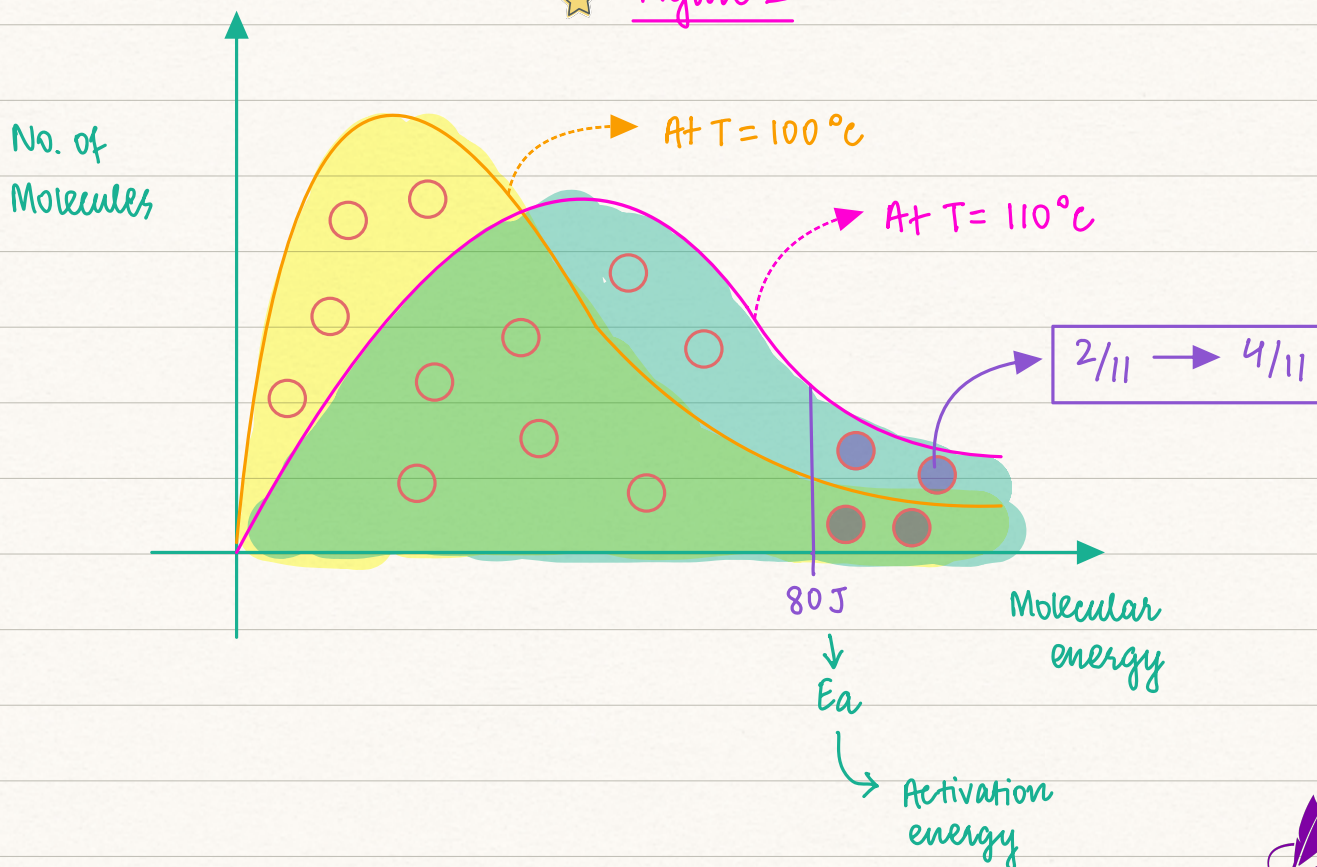 No. of
Molecules
At T = 100°C
At T = 110°C
2/11 → 4/11
80J
Molecular
energy
Ea
Activation
energy